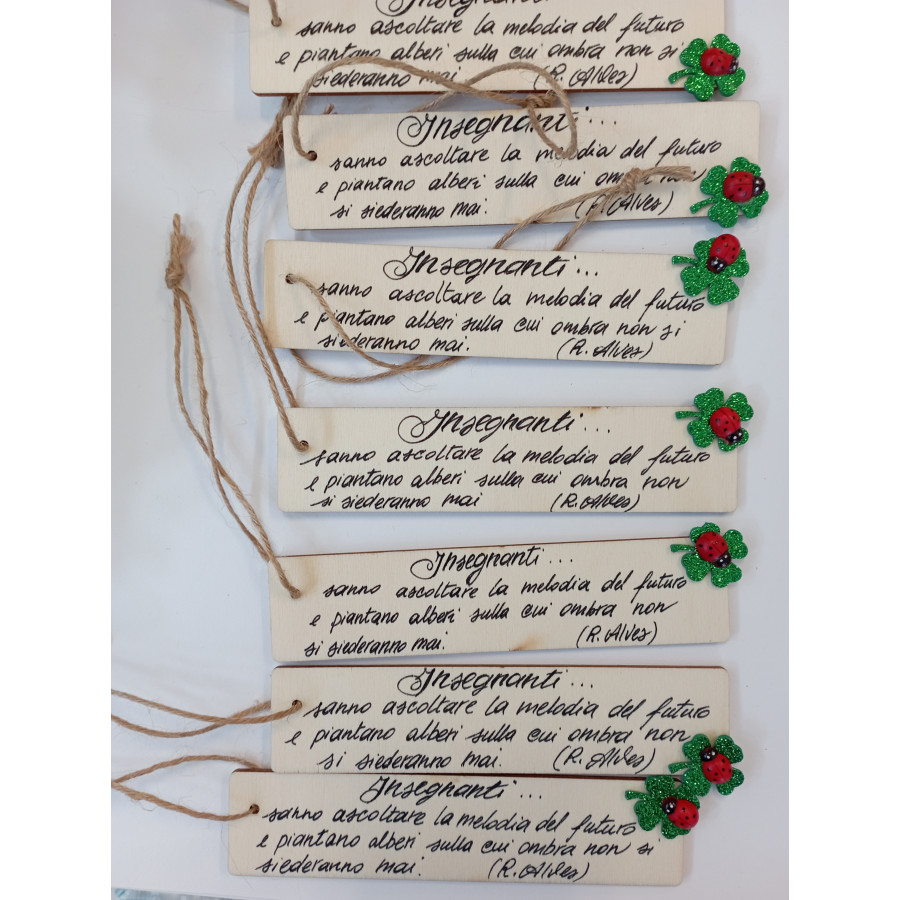 Insegnanti
sanno ascoltare la melodia del futuro
e piantano alberi sulla cui ombra non si
siederanno mai (R. Alves)
Insegnanti...
sanno ascoltare la melodia del futuro
e piantano alberi sulla cui ombra non
si siederanno mai. (R. Alves)
Insegnanti...
sanno ascoltare la melodia del futuro
e piantano alberi sulla cui ombra non si
siederanno mai. (R. Alves)
Insegnanti...
sanno ascoltare la melodia del futuro
e piantano alberi sulla cui ombra non
si siederanno mai (R. Alves)
Insegnanti...
sanno ascoltare la melodia del futuro
e piantano alberi sulla cui ombra non
si siederanno mai. (R. Alves)
Insegnanti...
sanno ascoltare la melodia del futuro
e piantano alberi sulla cui ombra non
si siederanno mai. (R. Alves)
Insegnanti...
sanno ascoltare la melodia del futuro
e piantano alberi sulla cui ombra non si
siederanno mai. (R. Alves)